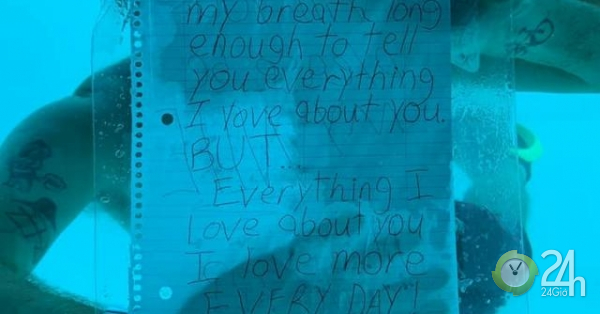 my breath long
enough to tell
you everything
I love about you.
BUT...
Everything I
Love about you
I love more
EVERY DAY!
24h
24Giờ